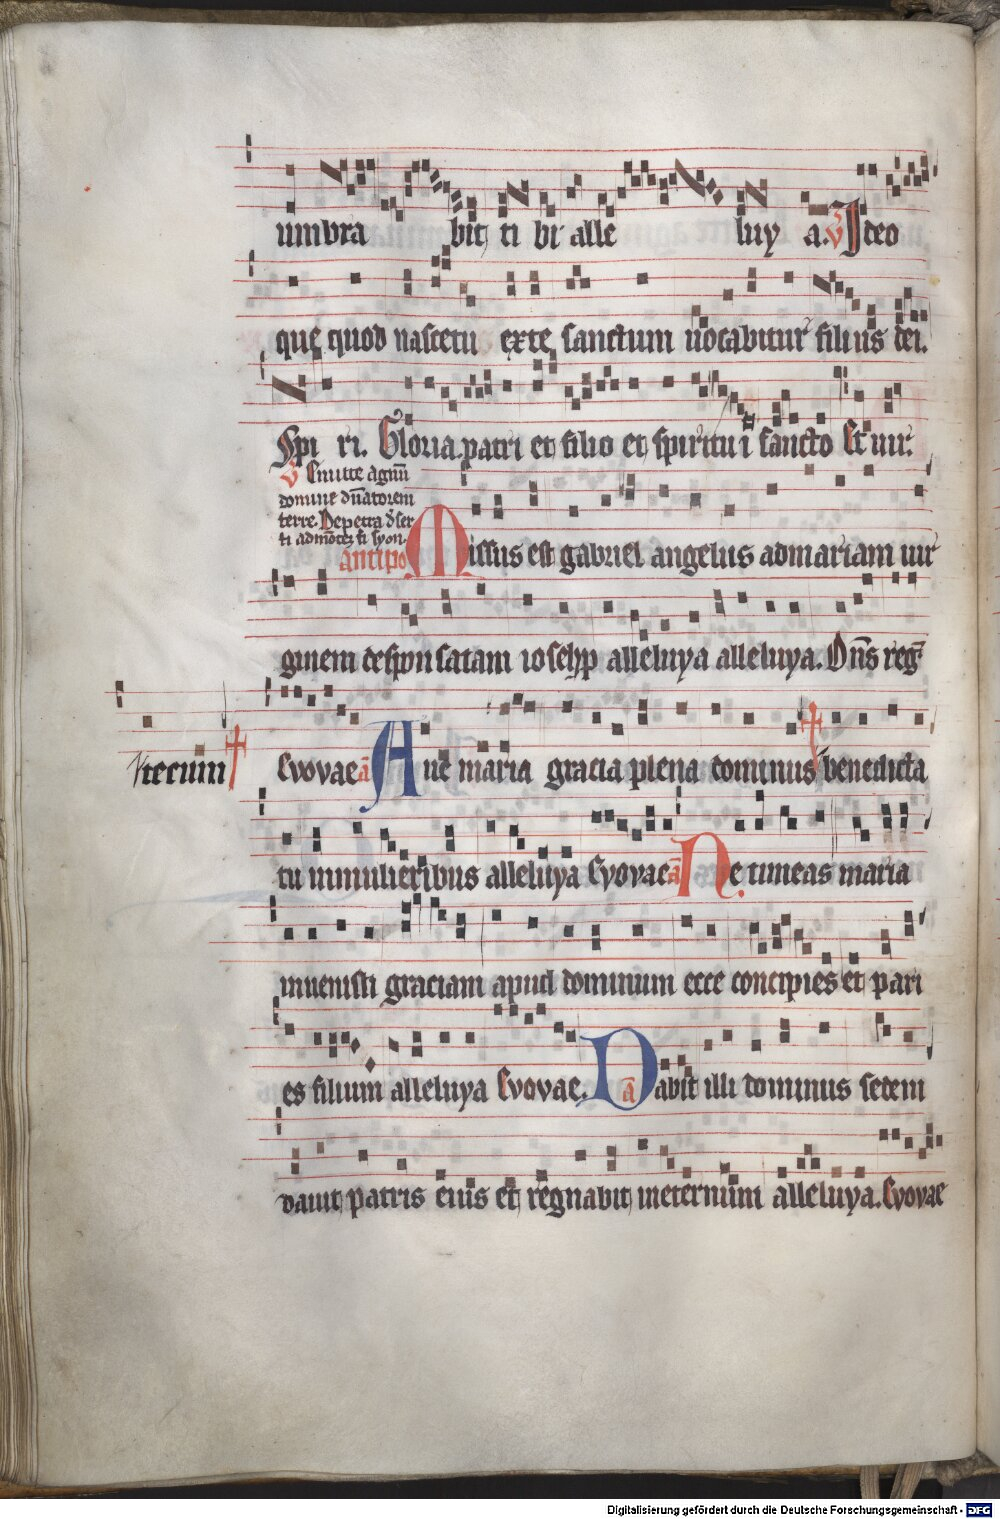 umbra bit ti bi alle luy a. V Ideo
que quod nascetur exte sanctum uocabitur filius dei.
Spi ri. Gloria patri et filio et spiritui sancto Et uir.
V Emitte agnū
domine dn̄atorem
terre. De petra d̄ser
ti admōtez fi syon.
antipo Missus est gabriel angelus admariam uir
ginem desponsatam ioseph alleluya alleluya. Dn̄s reg
tecum
Evovae a Aue maria gracia plena dominus benedicta
tu inmulieribus alleluya Evovae a Ne timeas maria
inuenisti graciam apud dominum ecce concipies et pari
es filium alleluya Evovae. a Dabit illi dominus sedem
dauit patris eius et regnabit ineternum alleluya. Evovae
Digitalisierung gefördert durch die Deutsche Forschungsgemeinschaft - DFG